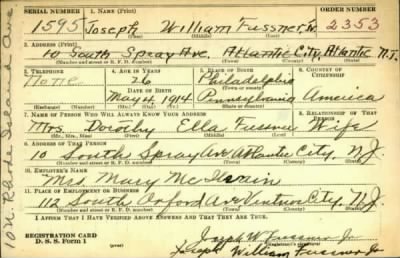 SERIAL NUMBER 1. NAME (Print) ORDER NUMBER
1595 Joseph William Fussner, Jr. 2353
(First) (Middle) (Last)
3. ADDRESS (Print)
10 South Spray Ave. Atlantic City, Atlantic N.J.
(Number and street or R. F. D. number) (Town) (County) (State)
3. TELEPHONE 4. AGE IN YEARS 5. PLACE OF BIRTH 6. COUNTRY OF CITIZENSHIP
None 26 Philadelphia
DATE OF BIRTH (Town or county)
May 4, 1914 Pennsylvania America
(Exchange) (Number) (Mo.) (Day) (Yr.) (State or country)
7. NAME OF PERSON WHO WILL ALWAYS KNOW YOUR ADDRESS 8. RELATIONSHIP OF THAT PERSON
Mrs. Dorothy Ella Fussner Wife
(Mr., Mrs., Miss) (First) (Middle) (Last)
9. ADDRESS OF THAT PERSON
10 South Spray Ave Atlantic City, N.J.
(Number and street or R. F. D. number) (Town) (County) (State)
10. EMPLOYER'S NAME
Mrs Mary McIlvain
11. PLACE OF EMPLOYMENT OR BUSINESS
112 South Oxford Ave Ventnor City, N.J.
(Number and street or R. F. D. number) (Town) (County) (State)
I AFFIRM THAT I HAVE VERIFIED ABOVE ANSWERS AND THAT THEY ARE TRUE.
REGISTRATION CARD
D. S. S. Form 1
Joseph W Fussner Jr
(Registrant's signature)
Joseph William Fussner Jr
Rhode Island Ave